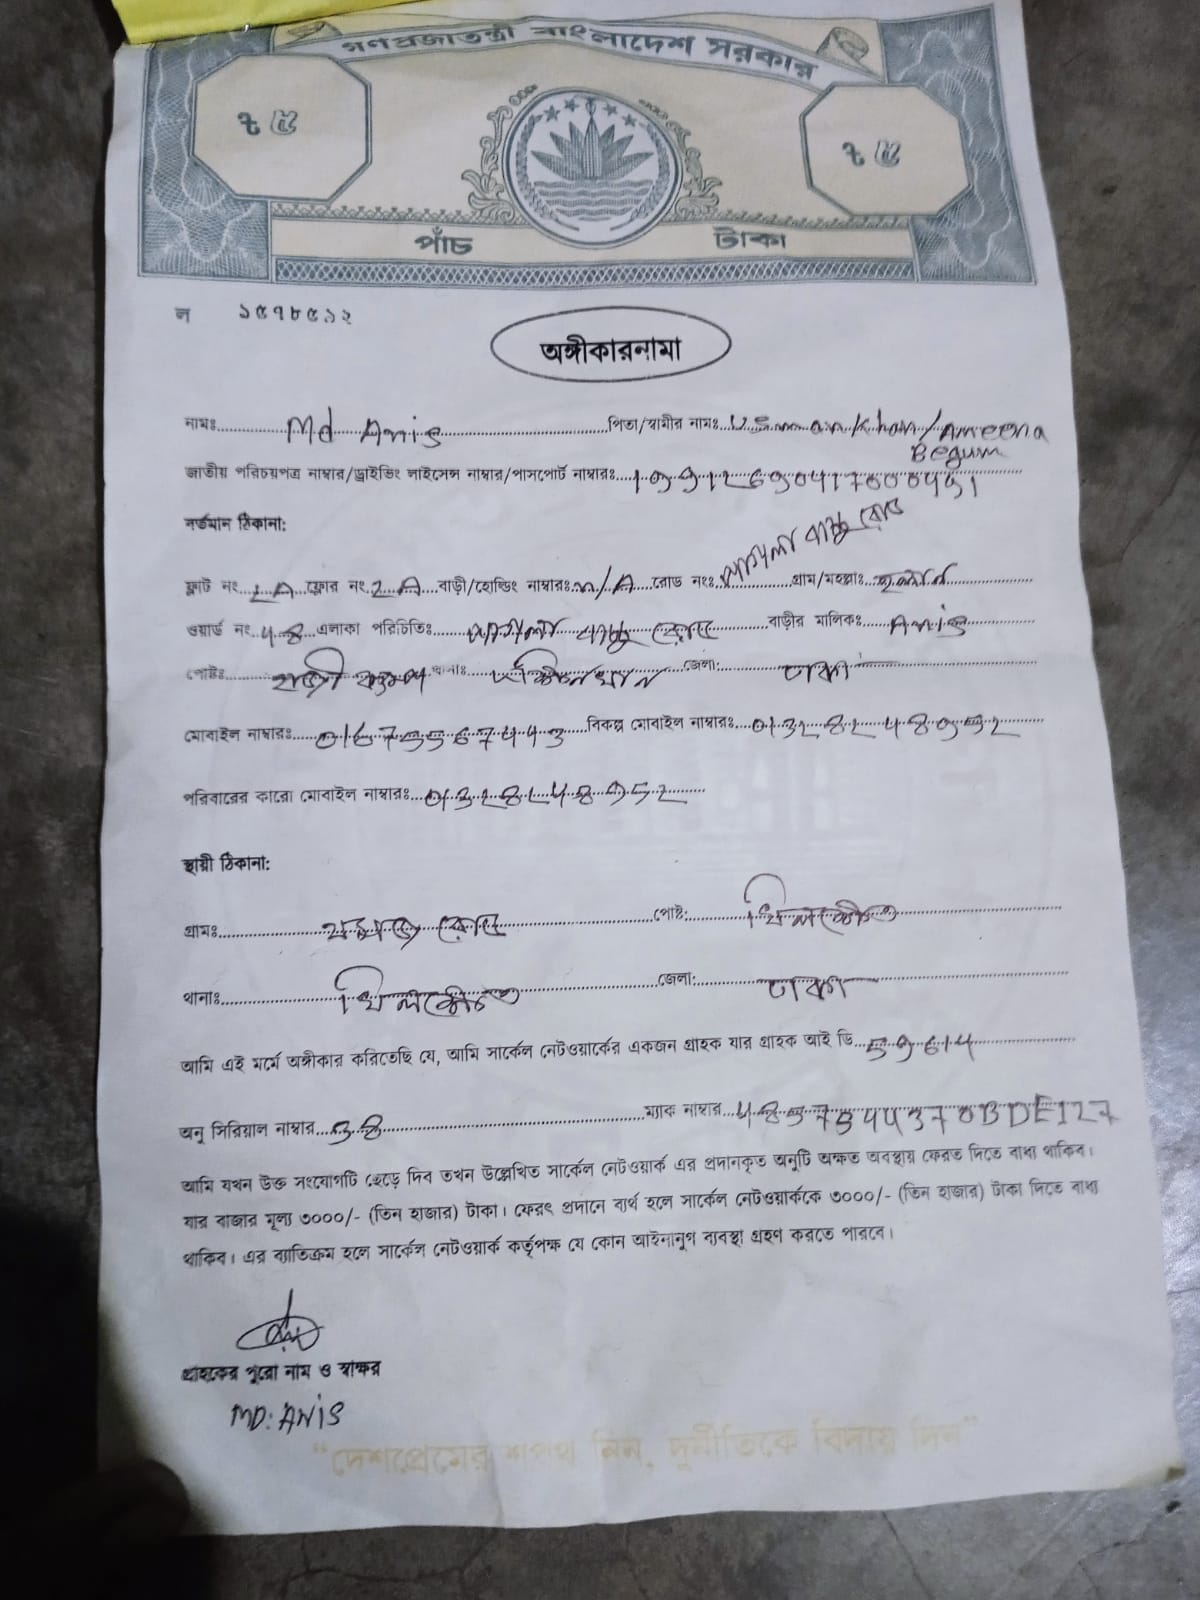 গণপ্রজাতন্ত্রী বাংলাদেশ সরকার
ট ৫ ট ৫
পাঁচ টাকা
ন ১৫৭৮৫১২
অঙ্গীকারনামা
নামঃ Md Anis পিতা/স্বামীর নামঃ Usman Khan/Ameena Begum
জাতীয় পরিচয়পত্র নাম্বার/ড্রাইভিং লাইসেন্স নাম্বার/পাসপোর্ট নাম্বারঃ
বর্তমান ঠিকানা:
ফ্লাট নং 2A ফ্লোর নং 2A বাড়ী/হোল্ডিং নাম্বারঃ N/A রোড নংঃ গ্রাম/মহল্লাঃ
ওয়ার্ড নং 48 এলাকা পরিচিতিঃ বাড়ীর মালিকঃ Anis
পোষ্টঃ থানাঃ দক্ষিনখান জেলা: ঢাকা
মোবাইল নাম্বারঃ বিকল্প মোবাইল নাম্বারঃ 01328248952
পরিবারের কারো মোবাইল নাম্বারঃ 01328248952
স্থায়ী ঠিকানা:
গ্রামঃ পোষ্ট: খিলক্ষেত
থানাঃ খিলক্ষেত জেলা: ঢাকা
আমি এই মর্মে অঙ্গীকার করিতেছি যে, আমি সার্কেল নেটওয়ার্কের একজন গ্রাহক যার গ্রাহক আই ডি 59614
অনু সিরিয়াল নাম্বার 38 ম্যাক নাম্বার
আমি যখন উক্ত সংযোগটি ছেড়ে দিব তখন উল্লেখিত সার্কেল নেটওয়ার্ক এর প্রদানকৃত অনুটি অক্ষত অবস্থায় ফেরত দিতে বাধ্য থাকিব।
যার বাজার মূল্য ৩০০০/- (তিন হাজার) টাকা। ফেরৎ প্রদানে ব্যর্থ হলে সার্কেল নেটওয়ার্ককে ৩০০০/- (তিন হাজার) টাকা দিতে বাধ্য
থাকিব। এর ব্যাতিক্রম হলে সার্কেল নেটওয়ার্ক কর্তৃপক্ষ যে কোন আইনানুগ ব্যবস্থা গ্রহণ করতে পারবে।
গ্রাহকের পুরো নাম ও স্বাক্ষর
MD: ANIS
“দেশপ্রেমের শপথ নিন, দুর্নীতিকে বিদায় দিন”